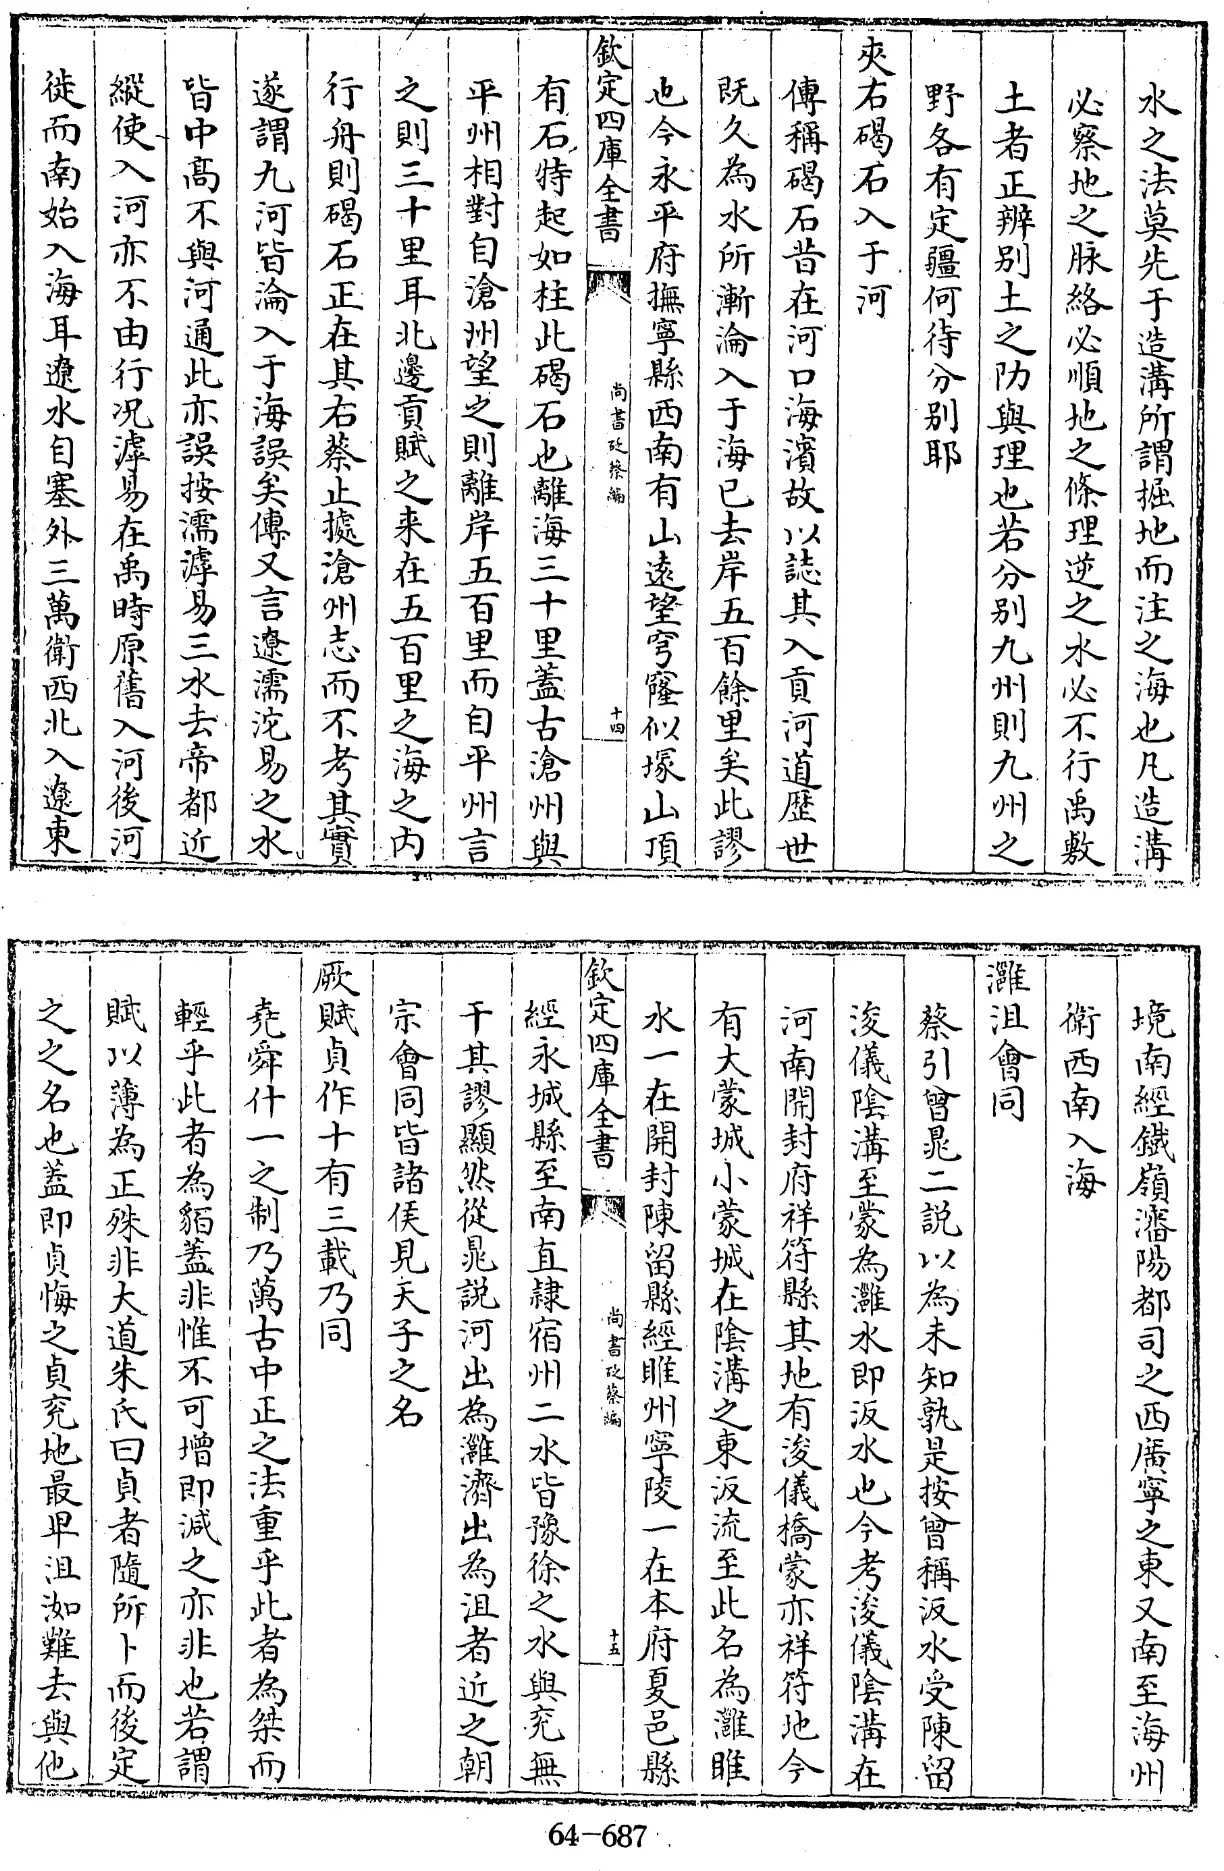 水之法莫先于造溝所謂掘地而注之海也凡造溝
必察地之脉絡必順地之條理逆之水必不行禹敷
土者正辨别土之防與理也若分别九州則九州之
野各有定疆何待分别耶
夾右碣石入于河
傳稱碣石昔在河口海濱故以誌其入貢河道歷世
既久為水所漸淪入于海已去岸五百餘里矣此謬
也今永平府撫寧縣西南有山遠望穹窿似塚山頂
欽定四庫全書
尚書砭蔡編
十四
有石特起如柱此碣石也離海三十里蓋古滄州與
平州相對自滄州望之則離岸五百里而自平州言
之則三十里耳北邊貢賦之来在五百里之海之内
行舟則碣石正在其右蔡止據滄州志而不考其實
遂謂九河皆淪入于海誤矣傳又言遼濡滹易之水
皆中高不與河通此亦誤按濡滹易三水去帝都近
縱使入河亦不由行况滹易在禹時原舊入河後河
徙而南始入海耳遼水自塞外三萬衛西北入遼東
境南經鐵嶺瀋陽都司之西廣寧之東又南至海州
衛西南入海
灉沮會同
蔡引曾晁二説以為未知孰是按曾稱汳水受陳留
浚儀陰溝至蒙為灉水即汳水也今考浚儀陰溝在
河南開封府祥符縣其地有浚儀橋蒙亦祥符地今
有大蒙城小蒙城在陰溝之東汳流至此名為灉睢
水一在開封陳留縣經睢州寧陵一在本府夏邑縣
欽定四庫全書
尚書砭蔡編
十五
經永城縣至南直隸宿州二水皆豫徐之水與兖無
干其謬顯然從晁説河出為灉濟出為沮者近之朝
宗會同皆諸侯見天子之名
厥賦貞作十有三載乃同
堯舜什一之制乃萬古中正之法重乎此者為桀而
輕乎此者為貊蓋非惟不可增即減之亦非也若謂
賦以薄為正殊非大道朱氏曰貞者隨所卜而後定
之之名也蓋即貞悔之貞兖地最卑沮洳難去與他
64-687